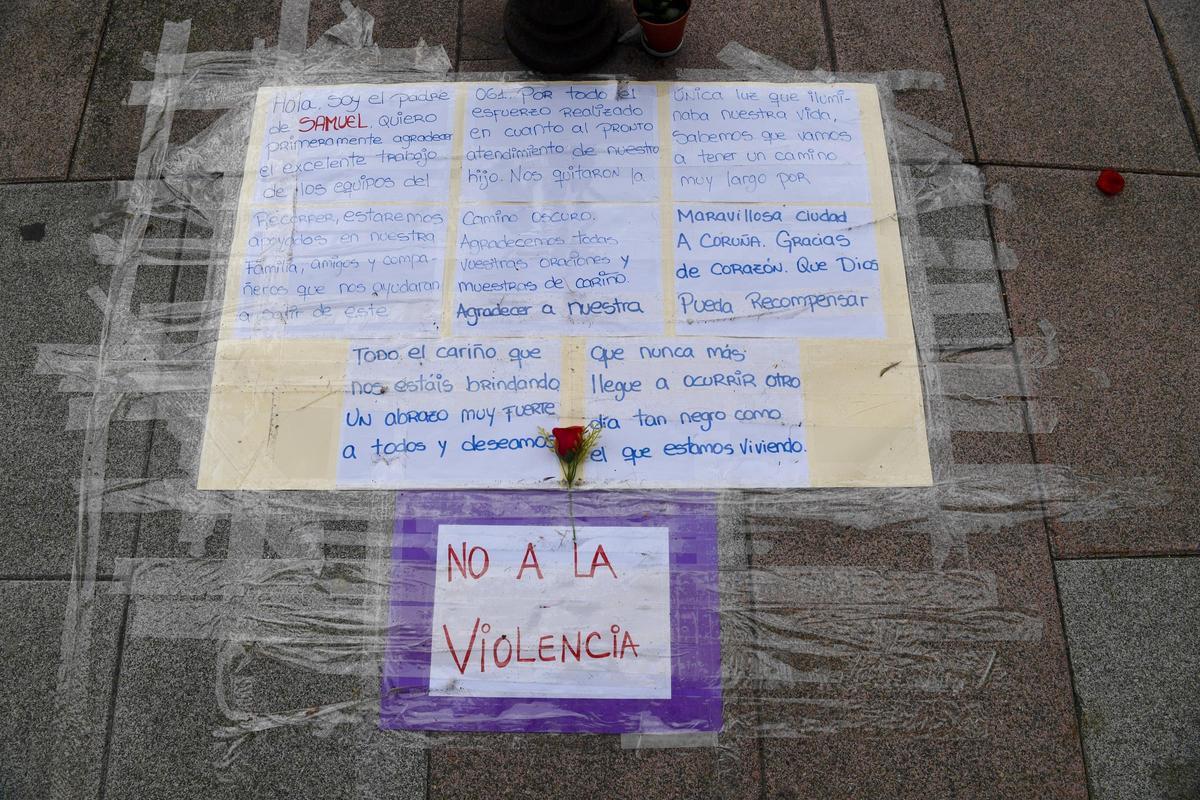 Hola. Soy el padre
de SAMUEL. Quiero
primeramente agradecer
el excelente trabajo
de los equipos del
061. Por todo el
esfuerzo realizado
en cuanto al pronto
atendimento de nuestro
hijo. Nos quitaron la
Única luz que ilumi-
naba nuestra vida,
Sabemos que vamos
a tener un camino
muy largo por
Recorrer, estaremos
apoyados en nuestra
familia, amigos y compa-
ñeros que nos ayudaran
a salir de este
Camino oscuro.
Agradecemos todas
vuestras oraciones y
muestras de cariño.
Agradecer a nuestra
Maravillosa ciudad
A Coruña. Gracias
de corazón. Que Dios
Pueda Recompensar
Todo el cariño que
nos estáis brindando
Un abrazo muy fuerte
a todos y deseamos
que nunca más
llegue a ocurrir otro
día tan negro como
el que estamos viviendo.
NO A LA
VIOLENCIA